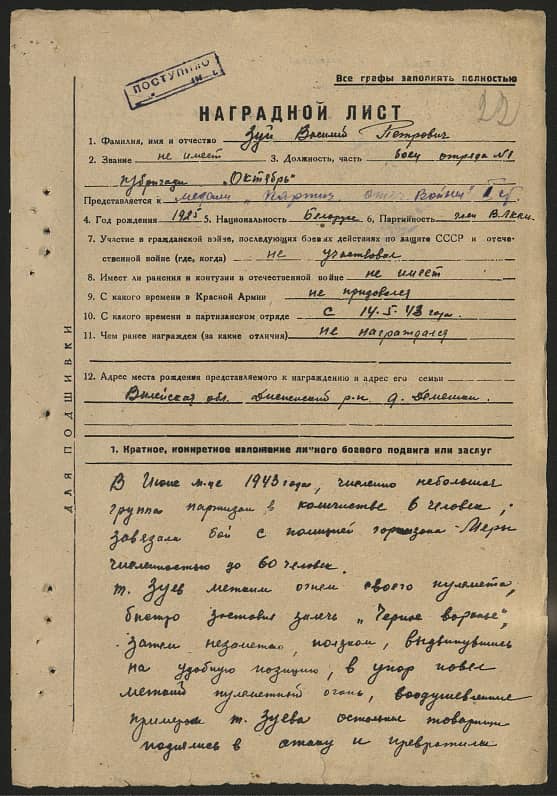 ПОСТУПИЛО
Все графы заполнять полностью
22
НАГРАДНОЙ ЛИСТ
1. Фамилия, имя и отчество Зуй Василий Петрович
2. Звание не имеет 3. Должность, часть боец отряда №1
п/бригади "Октябрь"
Представляется к медали "Партиз. отеч. Войны" I ст.
4. Год рождения 1925 5. Национальность Белорус 6. Партийность член ВЛКСМ.
7. Участие в гражданской войне, последующих боевых действиях по защите СССР и отече-
ственной войне (где, когда) не участвовал
8. Имеет ли ранения и контузии в отечественной войне не имеет
9. С какого времени в Красной Армии не призовался
10. С какого времени в партизанском отряде с 14.5.43 года.
11. Чем ранее награжден (за какие отличия) не награждался
12. Адрес места рождения представляемого к награждению и адрес его семьи
Вилейская обл. Дисненский р-н д.
1. Краткое, конкретное изложение личного боевого подвига или заслуг
В Июне м-це 1943 года, численно небольшая
группа партизан в количистве 6 человек;
завезала бой с полицией горнизона -Меры
численностью до 60 человек.
т. Зуев метким огнем своего пулемета,
быстро зоставил залечь "Черное воронье",
затем незометно, ползком, выдвинувшись
на удобную позицию, в упор повел
меткий пулеметный огонь, воодушевленые
примером т. Зуева остальные товарищи
поднялись в атаку и превратили
ДЛЯ ПОДШИВКИ